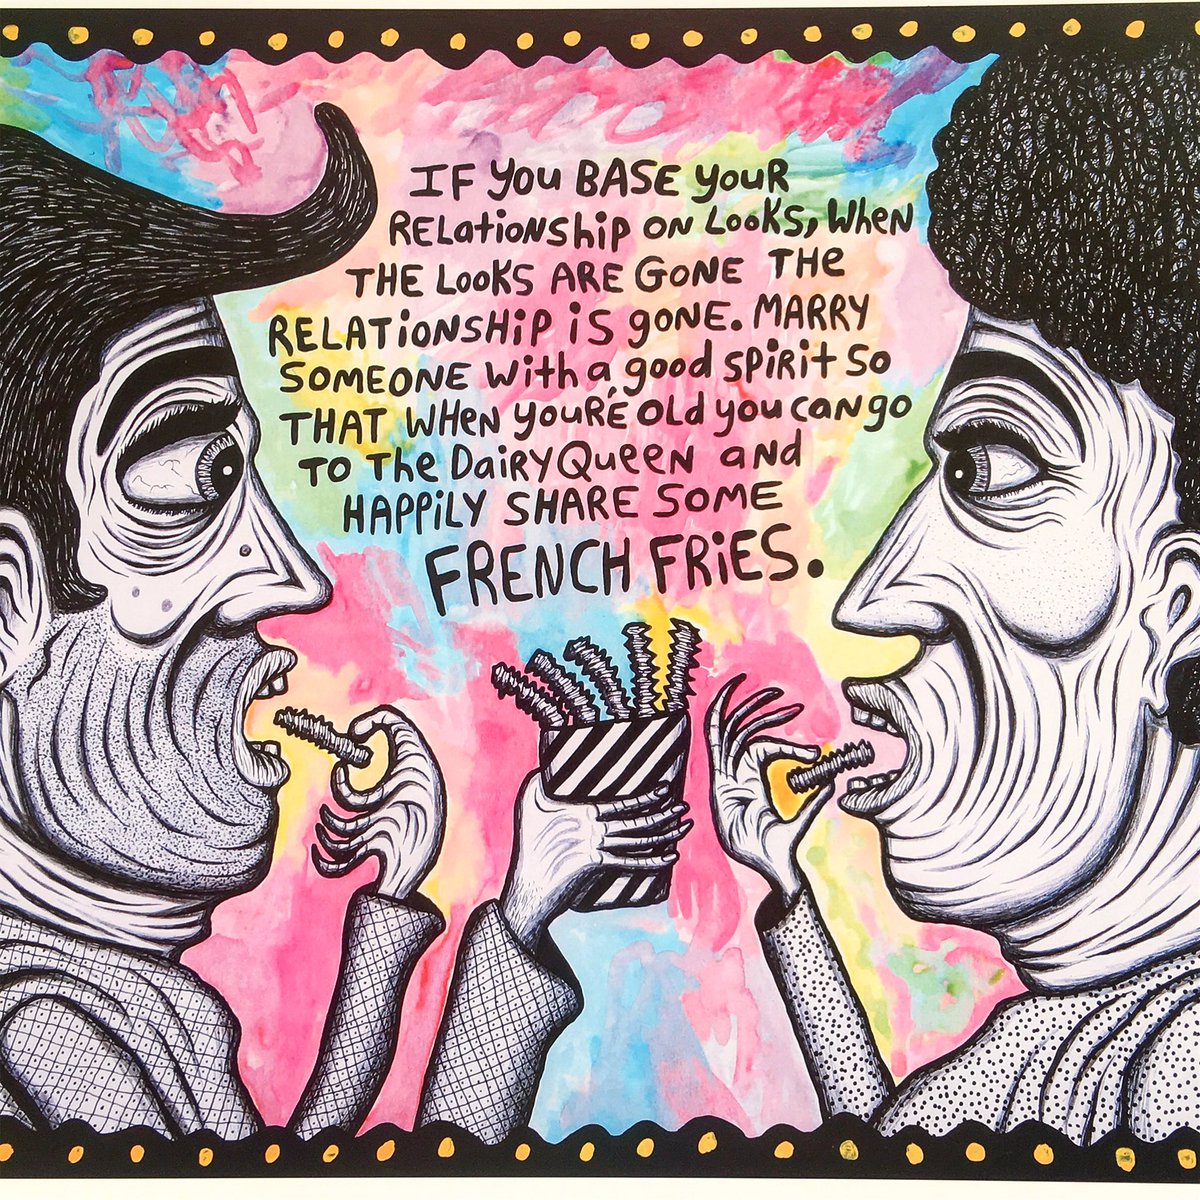 IF YOU BASE YOUR
RELATIONSHIP ON LOOKS, WHEN
THE LOOKS ARE GONE THE
RELATIONSHIP IS GONE. MARRY
SOMEONE WITH A GOOD SPIRIT SO
THAT WHEN YOU'RE OLD YOU CAN GO
TO THE DAIRY QUEEN AND
HAPPILY SHARE SOME
FRENCH FRIES.